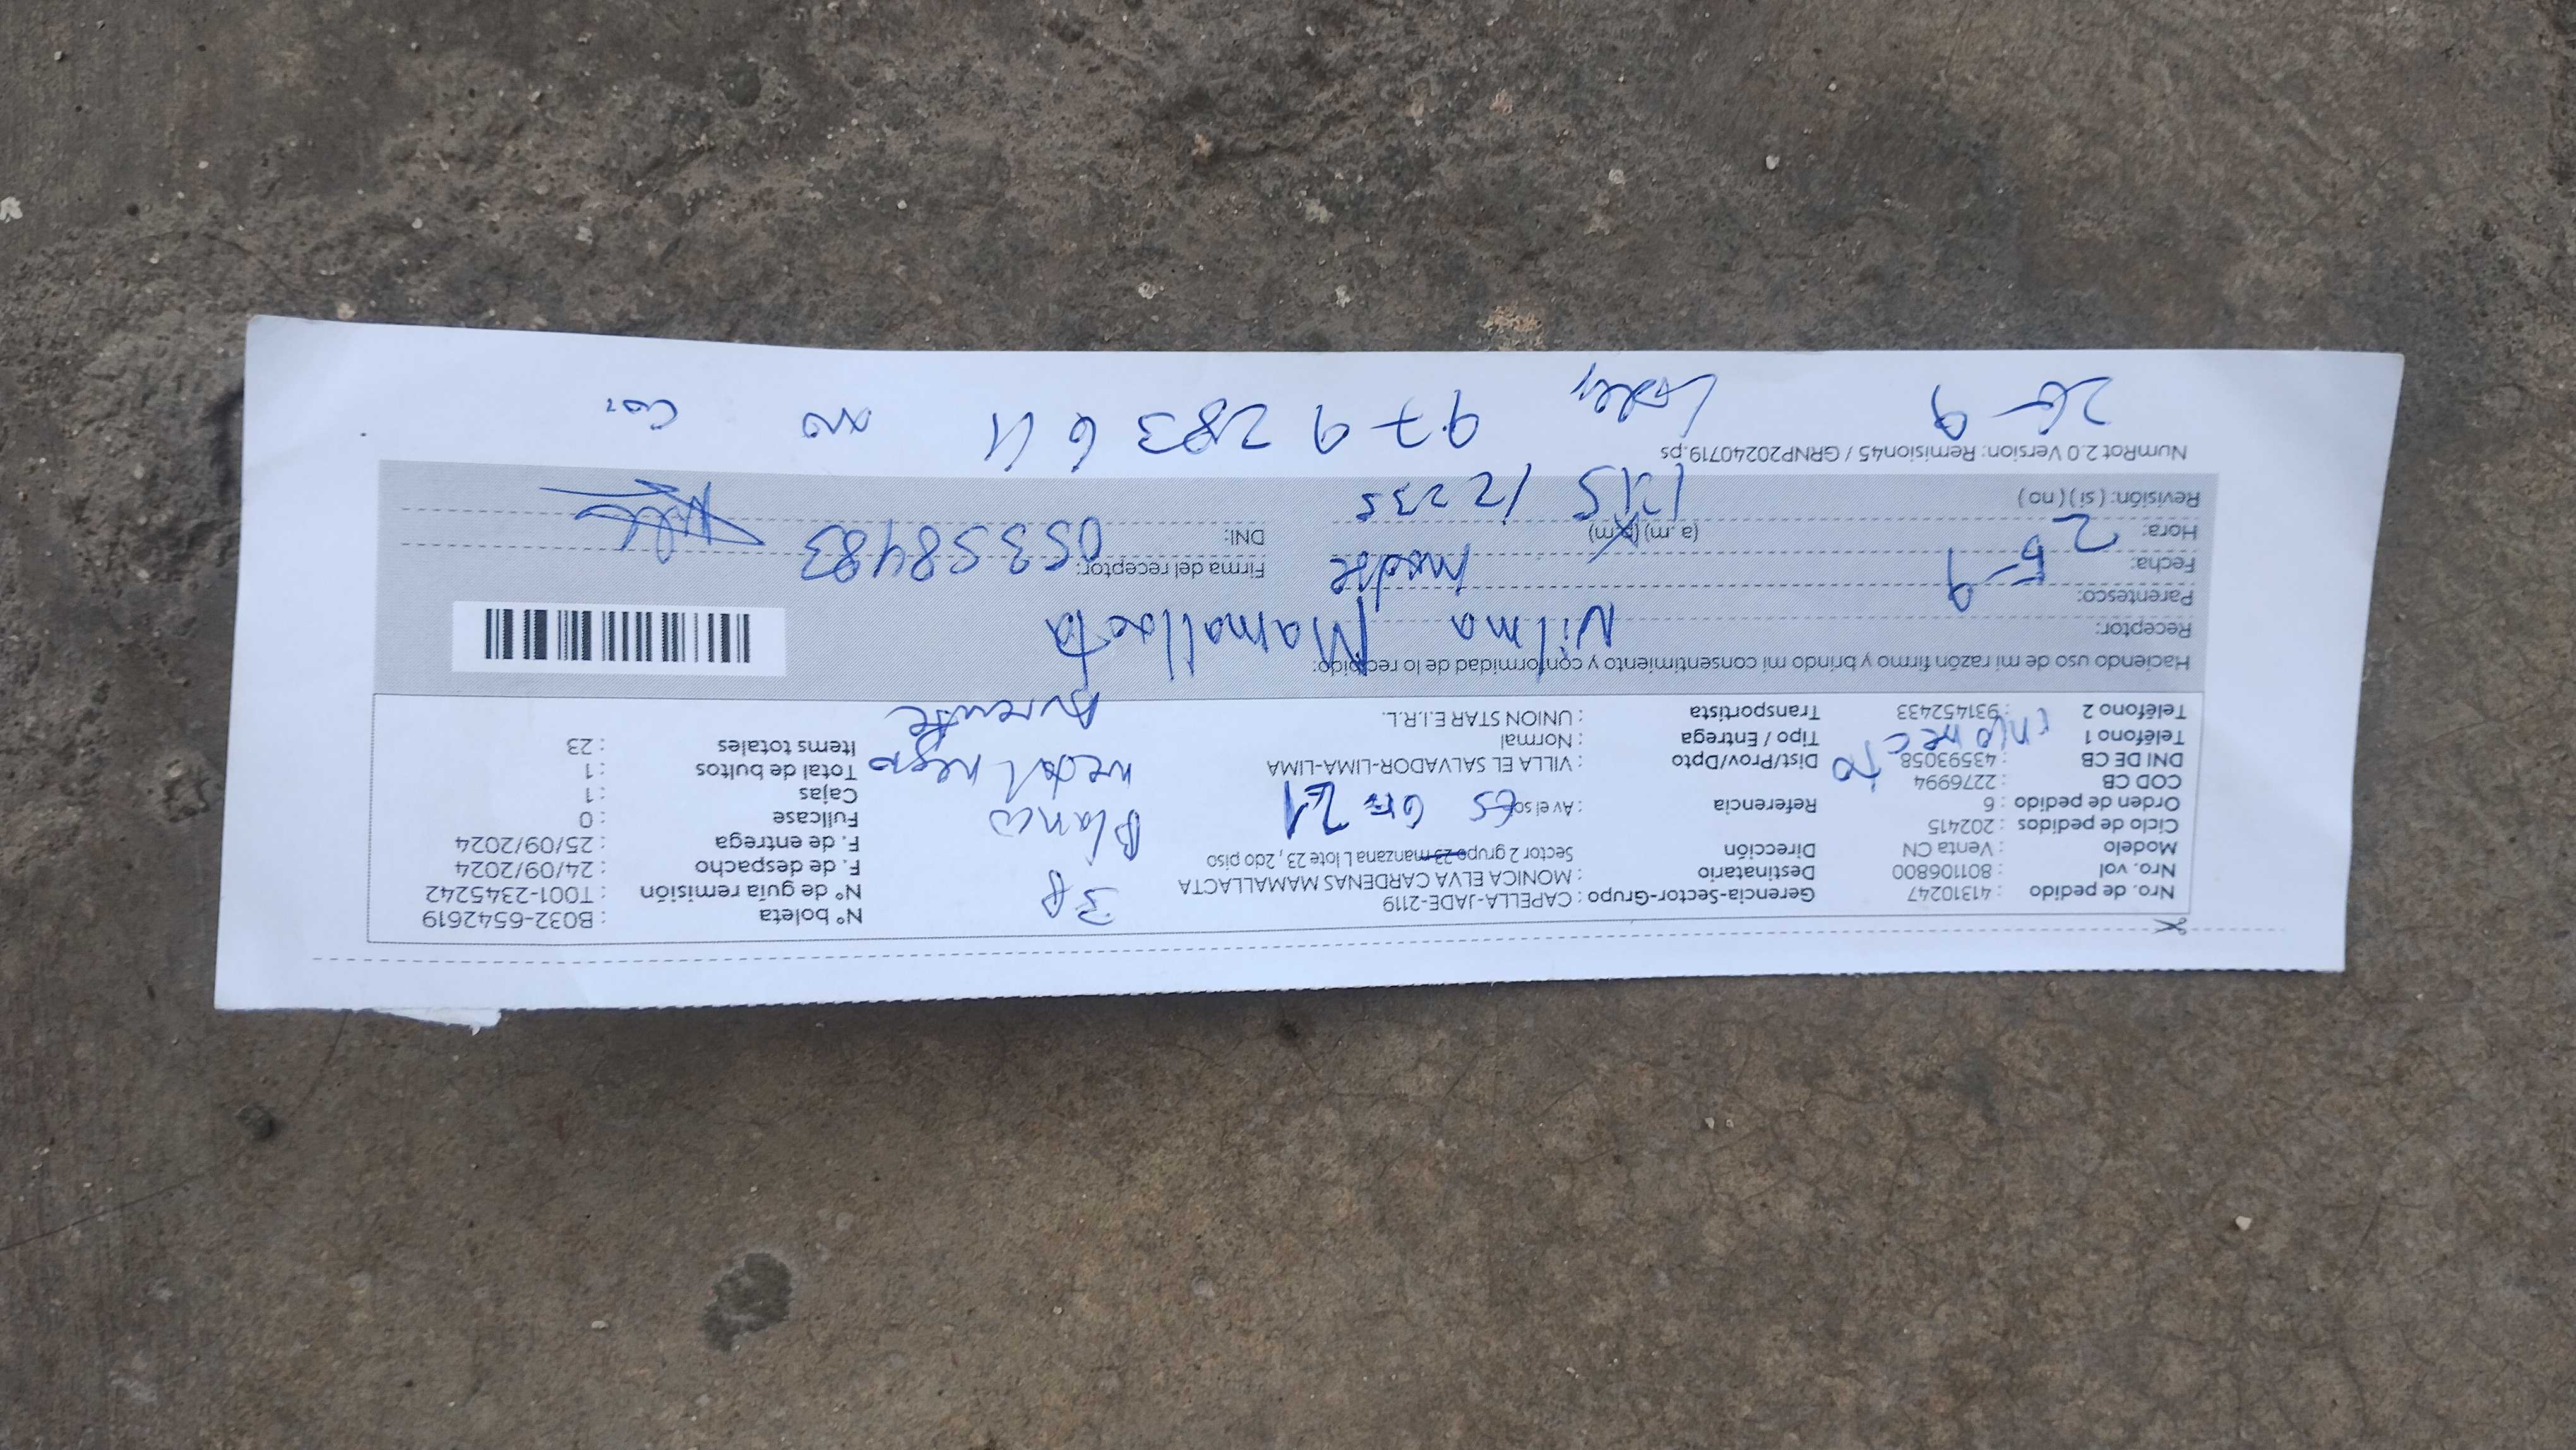 Nro. de pedido : 41310247 Gerencia-Sector-Grupo : CAPELLA-JADE-2119 3P Nº boleta : B032-6542619
Nro. vol : 801106800 Destinatario : MONICA ELVA CARDENAS MAMALLACTA Nº de guía remisión : T001-2345242
Modelo : Venta CN Dirección Sector 2 grupo 23 manzana L lote 23 , 2do piso F. de despacho : 24/09/2024
Ciclo de pedidos : 202415 Blanco F. de entrega : 25/09/2024
Orden de pedido : 6 Referencia : Av el sol ES Gr 21 Fullcase : 0
COD CB : 2276994 Cajas : 1
DNI DE CB : 43593058 Dist/Prov/Dpto : VILLA EL SALVADOR-LIMA-LIMA negro Total de bultos : 1
Teléfono 1 Tipo / Entrega : Normal Items totales : 23
Teléfono 2 : 931452433 Transportista : UNION STAR E.I.R.L.
Haciendo uso de mi razón firmo y brindo mi consentimiento y conformidad de lo recibido:
Receptor: Nilma Mamallacta
Parentesco: Madre
Fecha: 25-9 Firma del receptor:
Hora: (a .m) (p.m) DNI: 05358483
Revisión: ( si ) ( no ) 12235
NumRot 2.0 Version: Remision45 / GRNP20240719.ps
26-9